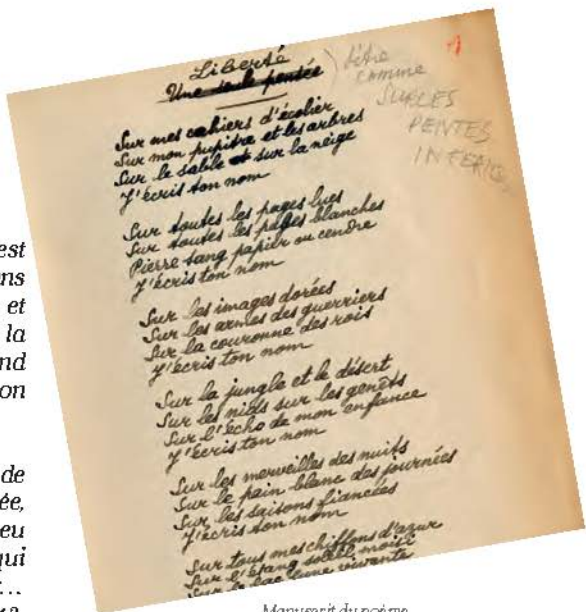 Liberté
Une seule pensée
titre
comme
SUR LES
PENTES
INFERIEU
Sur mes cahiers d'écolier
Sur mon pupitre et les arbres
Sur le sable et sur la neige
J'écris ton nom
Sur toutes les pages lues
Sur toutes les pages blanches
Pierre sang papier ou cendre
J'écris ton nom
Sur les images dorées
Sur les armes des guerriers
Sur la couronne des rois
J'écris ton nom
Sur la jungle et le désert
Sur les nids sur les genêts
Sur l'écho de mon enfance
J'écris ton nom
Sur les merveilles des nuits
Sur le pain blanc des journées
Sur les saisons fiancées
J'écris ton nom
Sur tous mes chiffons d'azur
Sur l'étang soleil moisi
Sur le lac lune vivante
est
ns
et
la
nd
on
de
ée,
eu
qui
Manuscrit du poème